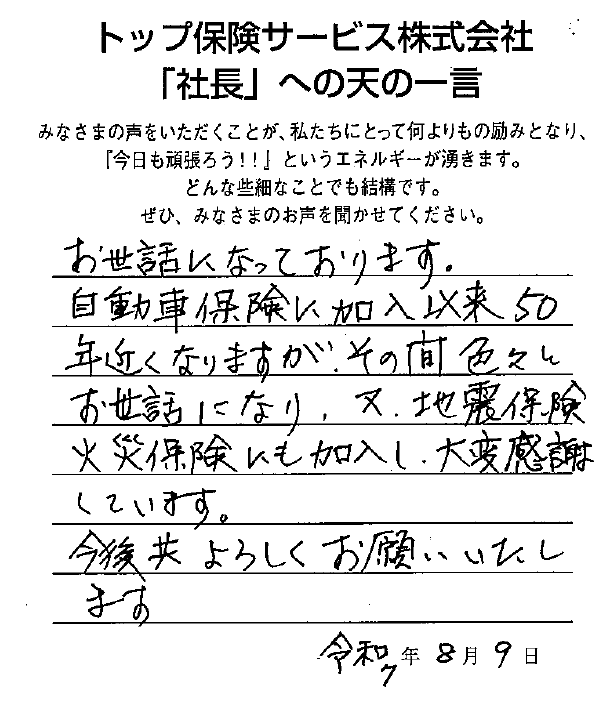 トップ保険サービス株式会社
「社長」への天の一言
みなさまの声をいただくことが、私たちにとって何よりもの励みとなり、
『今日も頑張ろう!!』というエネルギーが湧きます。
どんな些細なことでも結構です。
ぜひ、みなさまのお声を聞かせてください。
お世話になっております。
自動車保険に加入以来50
年近くなりますが、その間色々と
お世話になり、又、地震保険
火災保険にも加入し、大変感謝
しています。
今後共よろしくお願いいたし
ます
令和7年8月9日